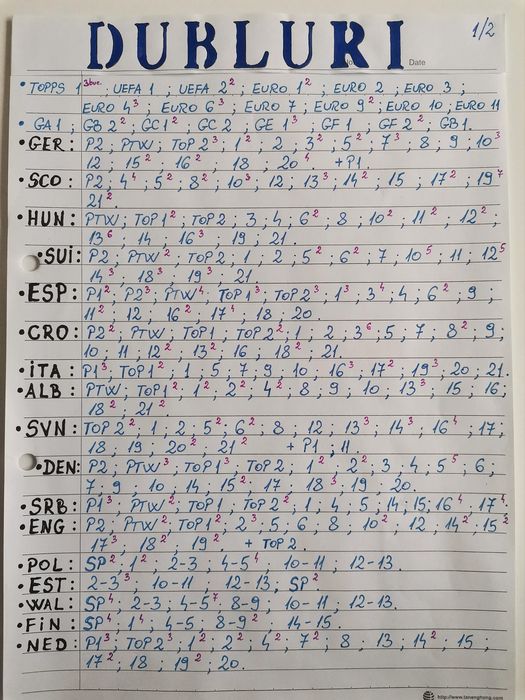 DUBLURI
1/2
No
Date
• TOPPS 1 ³ᵇᵘᶜ. ; UEFA 1 ; UEFA 2² ; EURO 1² ; EURO 2 ; EURO 3 ;
EURO 4³ ; EURO 6³ ; EURO 7 ; EURO 9² ; EURO 10 ; EURO 11
• GA1 ; GB 2² ; GC1² ; GC 2 ; GE 1³ ; GF 1 ; GF 2² ; GB1.
• GER: P2 ; PTW ; TOP 2³ ; 1² ; 2 ; 3² ; 5² ; 7³ ; 8 ; 9 ; 10³
12 ; 15² ; 16² ; 18 ; 20⁴ + P1.
• SCO: P2 ; 4⁴ ; 5² ; 8² ; 10³ ; 12 ; 13³ ; 14² ; 15 ; 17² ; 19⁷
21².
• HUN: PTW ; TOP1² ; TOP2 ; 3 ; 4 ; 6² ; 8 ; 10² ; 11² ; 12² ;
13⁶ ; 14 ; 16³ ; 19 ; 21.
• SUI: P2 ; PTW² ; TOP2 ; 1 ; 2 ; 5² ; 6² ; 7 ; 10⁵ ; 11 ; 12⁵
14³ ; 18³ ; 19³ ; 21.
• ESP: P1² ; P2³ ; PTW⁴ ; TOP1³ ; TOP2³ ; 1³ ; 3⁴ ; 4 ; 6² ; 9 ;
11² ; 12 ; 16² ; 17⁴ ; 18 ; 20.
• CRO: P2² ; PTW ; TOP1 ; TOP2² ; 1 ; 2 ; 3⁶ ; 5 ; 7 ; 8² ; 9 ;
10 ; 11 ; 12² ; 13² ; 16 ; 18² ; 21.
• ITA: P1³ ; TOP1² ; 1 ; 5 ; 7 ; 9 ; 10 ; 16³ ; 17² ; 19³ ; 20 ; 21.
• ALB: PTW ; TOP1² ; 1² ; 2² ; 4² ; 8 ; 9 ; 10 ; 13³ ; 15 ; 16 ;
18² ; 21².
• SVN: TOP 2² ; 1 ; 2 ; 5² ; 6² ; 8 ; 12 ; 13³ ; 14³ ; 16⁴ ; 17 ;
18 ; 19 ; 20² ; 21² + P1 ; 11.
• DEN: P2 ; PTW³ ; TOP1³ ; TOP2 ; 1² ; 2² ; 3 ; 4 ; 5⁵ ; 6 ;
7 ; 9 ; 10 ; 14 ; 15² ; 17 ; 18³ ; 19 ; 20.
• SRB: P1³ ; PTW² ; TOP1 ; TOP2² ; 1 ; 4 ; 5 ; 14 ; 15 ; 16⁴ ; 17⁴.
• ENG: P2 ; PTW² ; TOP1² ; 2³ ; 5 ; 6 ; 8 ; 10² ; 12 ; 14² ; 15²
17³ ; 18² ; 19². + TOP2.
• POL: SP² ; 1² ; 2-3 ; 4-5⁴ ; 10-11 ; 12-13.
• EST: 2-3³ ; 10-11 ; 12-13 ; SP².
• WAL: SP⁴ ; 2-3 ; 4-5⁷ ; 8-9 ; 10-11 ; 12-13.
• FIN: SP⁴ ; 1⁴ ; 4-5 ; 8-9² ; 14-15.
• NED: P1³ ; TOP2³ ; 1² ; 2² ; 4² ; 7² ; 8 ; 13 ; 14² ; 15 ;
17² ; 18 ; 19² ; 20.
http://www.tanenghong.com